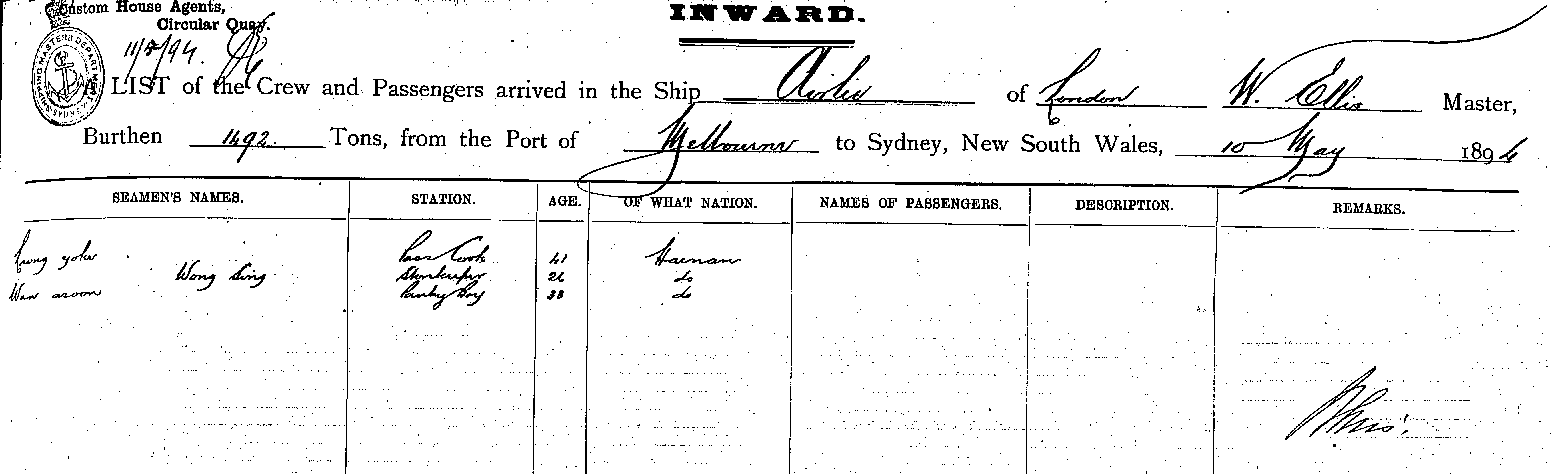 Custom House Agents,
Circular Quay.
INWARD.
11/5/94.
A LIST of the Crew and Passengers arrived in the Ship Airlie of London W. Ellis Master,
Burthen 1492 Tons, from the Port of Melbourne to Sydney, New South Wales, 10 May 1894
SEAMEN'S NAMES. STATION. AGE. OF WHAT NATION. NAMES OF PASSENGERS. DESCRIPTION. REMARKS.
yokw Pass Cook 41 Hainan
Wong Sing Storekeeper 26 do
Wan aroon Pantry Boy 23 do